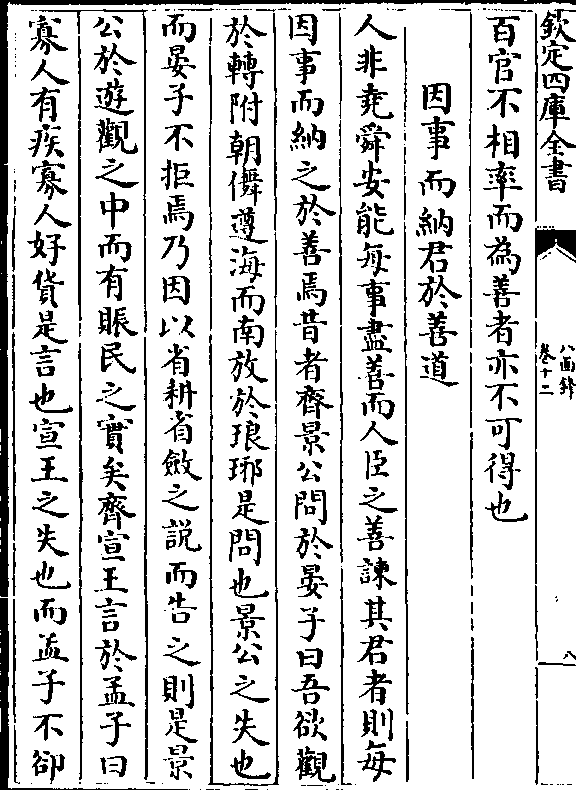 欽定四庫全書
八面鋒
卷十二
八
百官不相率而為善者亦不可得也
因事而納君於善道
人非堯舜安能每事盡善而人臣之善諫其君者則每
因事而納之於善焉昔者齊景公問於晏子曰吾欲觀
於轉附朝儛遵海而南放於琅琊是問也景公之失也
而晏子不拒焉乃因以省耕省斂之說而告之則是景
公於遊觀之中而有賑民之實矣齊宣王言於孟子曰
寡人有疾寡人好貨是言也宣王之失也而孟子不卻